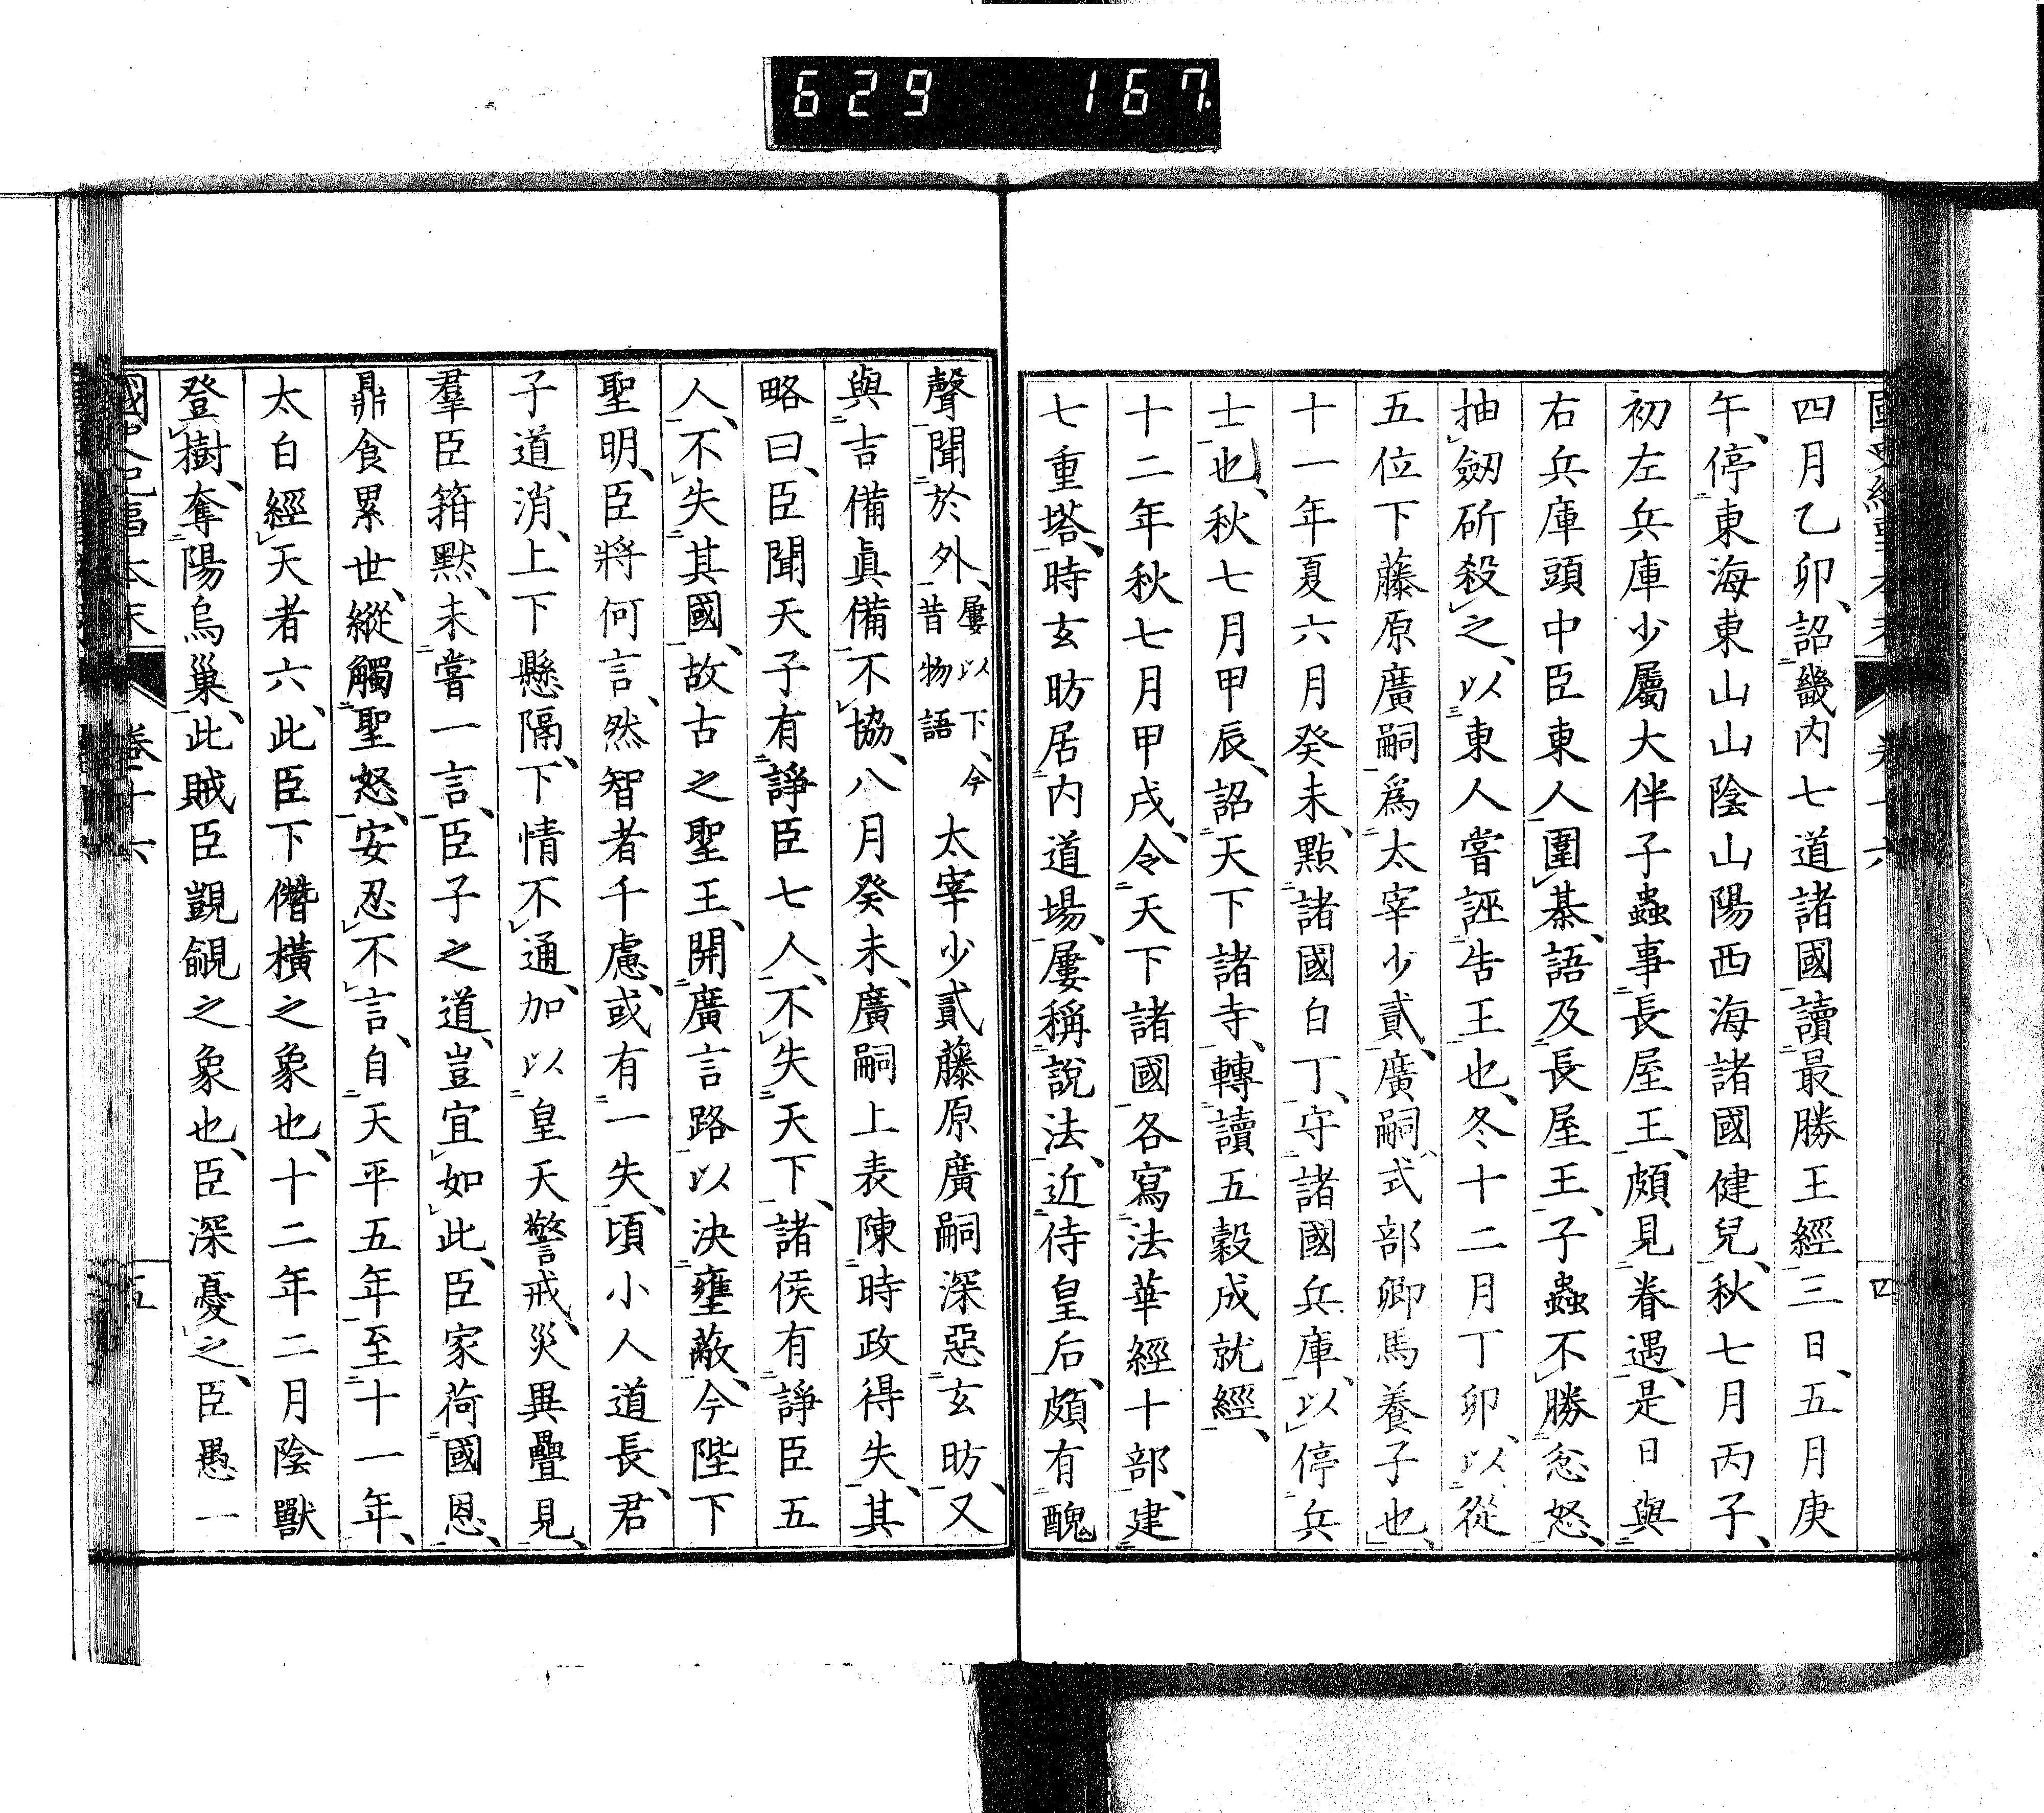 629 167
四月乙卯、詔畿内七道諸國讀最勝王經三日、五月庚
午、停東海東山山陰山陽西海諸國健兒、秋七月丙子、
初左兵庫少屬大伴子蟲事長屋王、頗見眷遇、是日與
右兵庫頭中臣東人圍棊、語及長屋王、子蟲不勝忿怒、
抽劒斫殺之、以東人嘗誣告王也、冬十二月丁卯、以從
五位下藤原廣嗣爲太宰少貳、廣嗣式部卿馬養子也、
十一年夏六月癸未、點諸國白丁、守諸國兵庫、以停兵
士也、秋七月甲辰、詔天下諸寺、轉讀五穀成就經、
十二年秋七月甲戌、令天下諸國各寫法華經十部、建
七重塔、時玄昉居内道場、屢稱說法、近侍皇后、頗有醜
聲聞於外、屢以下、今昔物語 太宰少貳藤原廣嗣深惡玄昉、又
與吉備眞備不協、八月癸未、廣嗣上表陳時政得失、其
略曰、臣聞天子有諍臣七人、不失天下、諸侯有諍臣五
人、不失其國、故古之聖王、開廣言路以決壅蔽、今陛下
聖明、臣將何言、然智者千慮、或有一失、頃小人道長、君
子道消、上下懸隔、下情不通、加以皇天警戒、災異疊見、
羣臣箝默、未嘗一言、臣子之道、豈宜如此、臣家荷國恩、
鼎食累世、縱觸聖怒、安忍不言、自天平五年至十一年、
太白經天者六、此臣下僭橫之象也、十二年二月陰獸
登樹、奪陽烏巢、此賊臣覬覦之象也、臣深憂之、臣愚一
卷十六
五